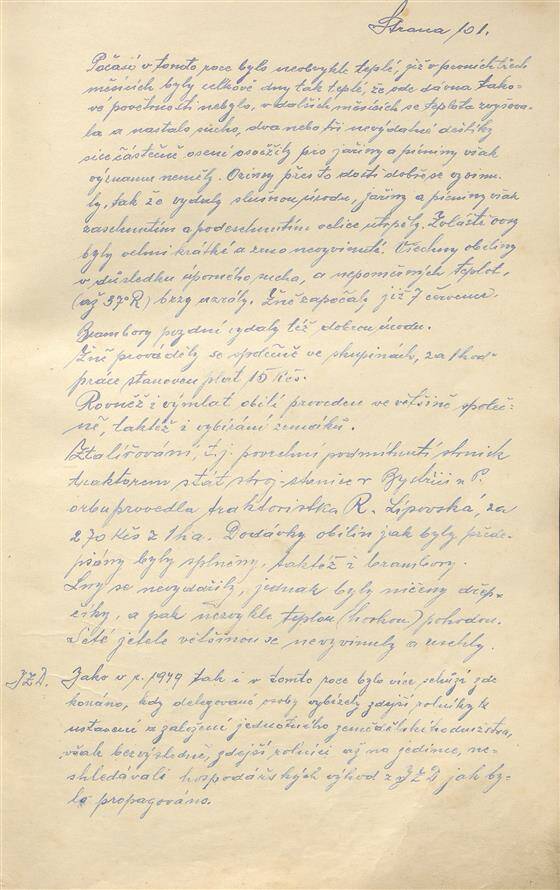 Strana 101.
Počasí v tomto roce bylo neobvykle teplé, již v prvních třech
měsících byly celkově dny tak teplé, že ode dávna tako-
vé povětrnosti nebylo, v dalších měsících se teplota zvyšova-
la a nastalo sucho, dva nebo tři nevydatné deštíky
sice částečně osení osvěžily pro jařiny a pícniny však
významu neměly. Oziminy přes to dosti dobře se vyvinu-
ly, tak že vydaly slušnou úrodu, jařiny a pícniny však
zaschnutím a podeschnutím velice utrpěly. Zvláště ovsy
byly velmi krátké a zrno nevyvinuté. Všechny obiliny
v důsledku úporného sucha, a nepoměrných teplot,
(až 37°R) brzy uzrály. Žně započaly již 7 července.
Brambory pozdní vydaly též dobrou úrodu.
Žně prováděly se společně ve skupinách, za 1 hod
práce stanoven plat 15 Kčs.
Rovněž i výmlat obilí proveden ve většině společ-
ně, taktéž i vybírání zemáků.
t.j. povrchní podmítnutí strnisk
traktorem stát. stroj. stanice v Bystřici n P.
orbu provedla traktoristka R. Lipovská, za
270 Kčs z 1 ha. Dodávky obilin jak byly přede-
psány byly splněny, taktéž i brambory.
Lny se nevydařily, jednak byly ničeny dřep-
číky, a pak nezvykle teplou (horkou) pohodou.
Seté jetele většinou se nevyvinuly a uschly.
JZD. Jako v r. 1949 tak i v tomto roce bylo více schůzí zde
konáno, kdy delegované osoby vybízely zdejší rolníky k
ustavení a založení jednotného zemědělského družstva,
však bezvýsledně, zdejší rolníci až na jedince, ne-
shledávali hospodářských výhod z JZD jak by-
lo propagováno.